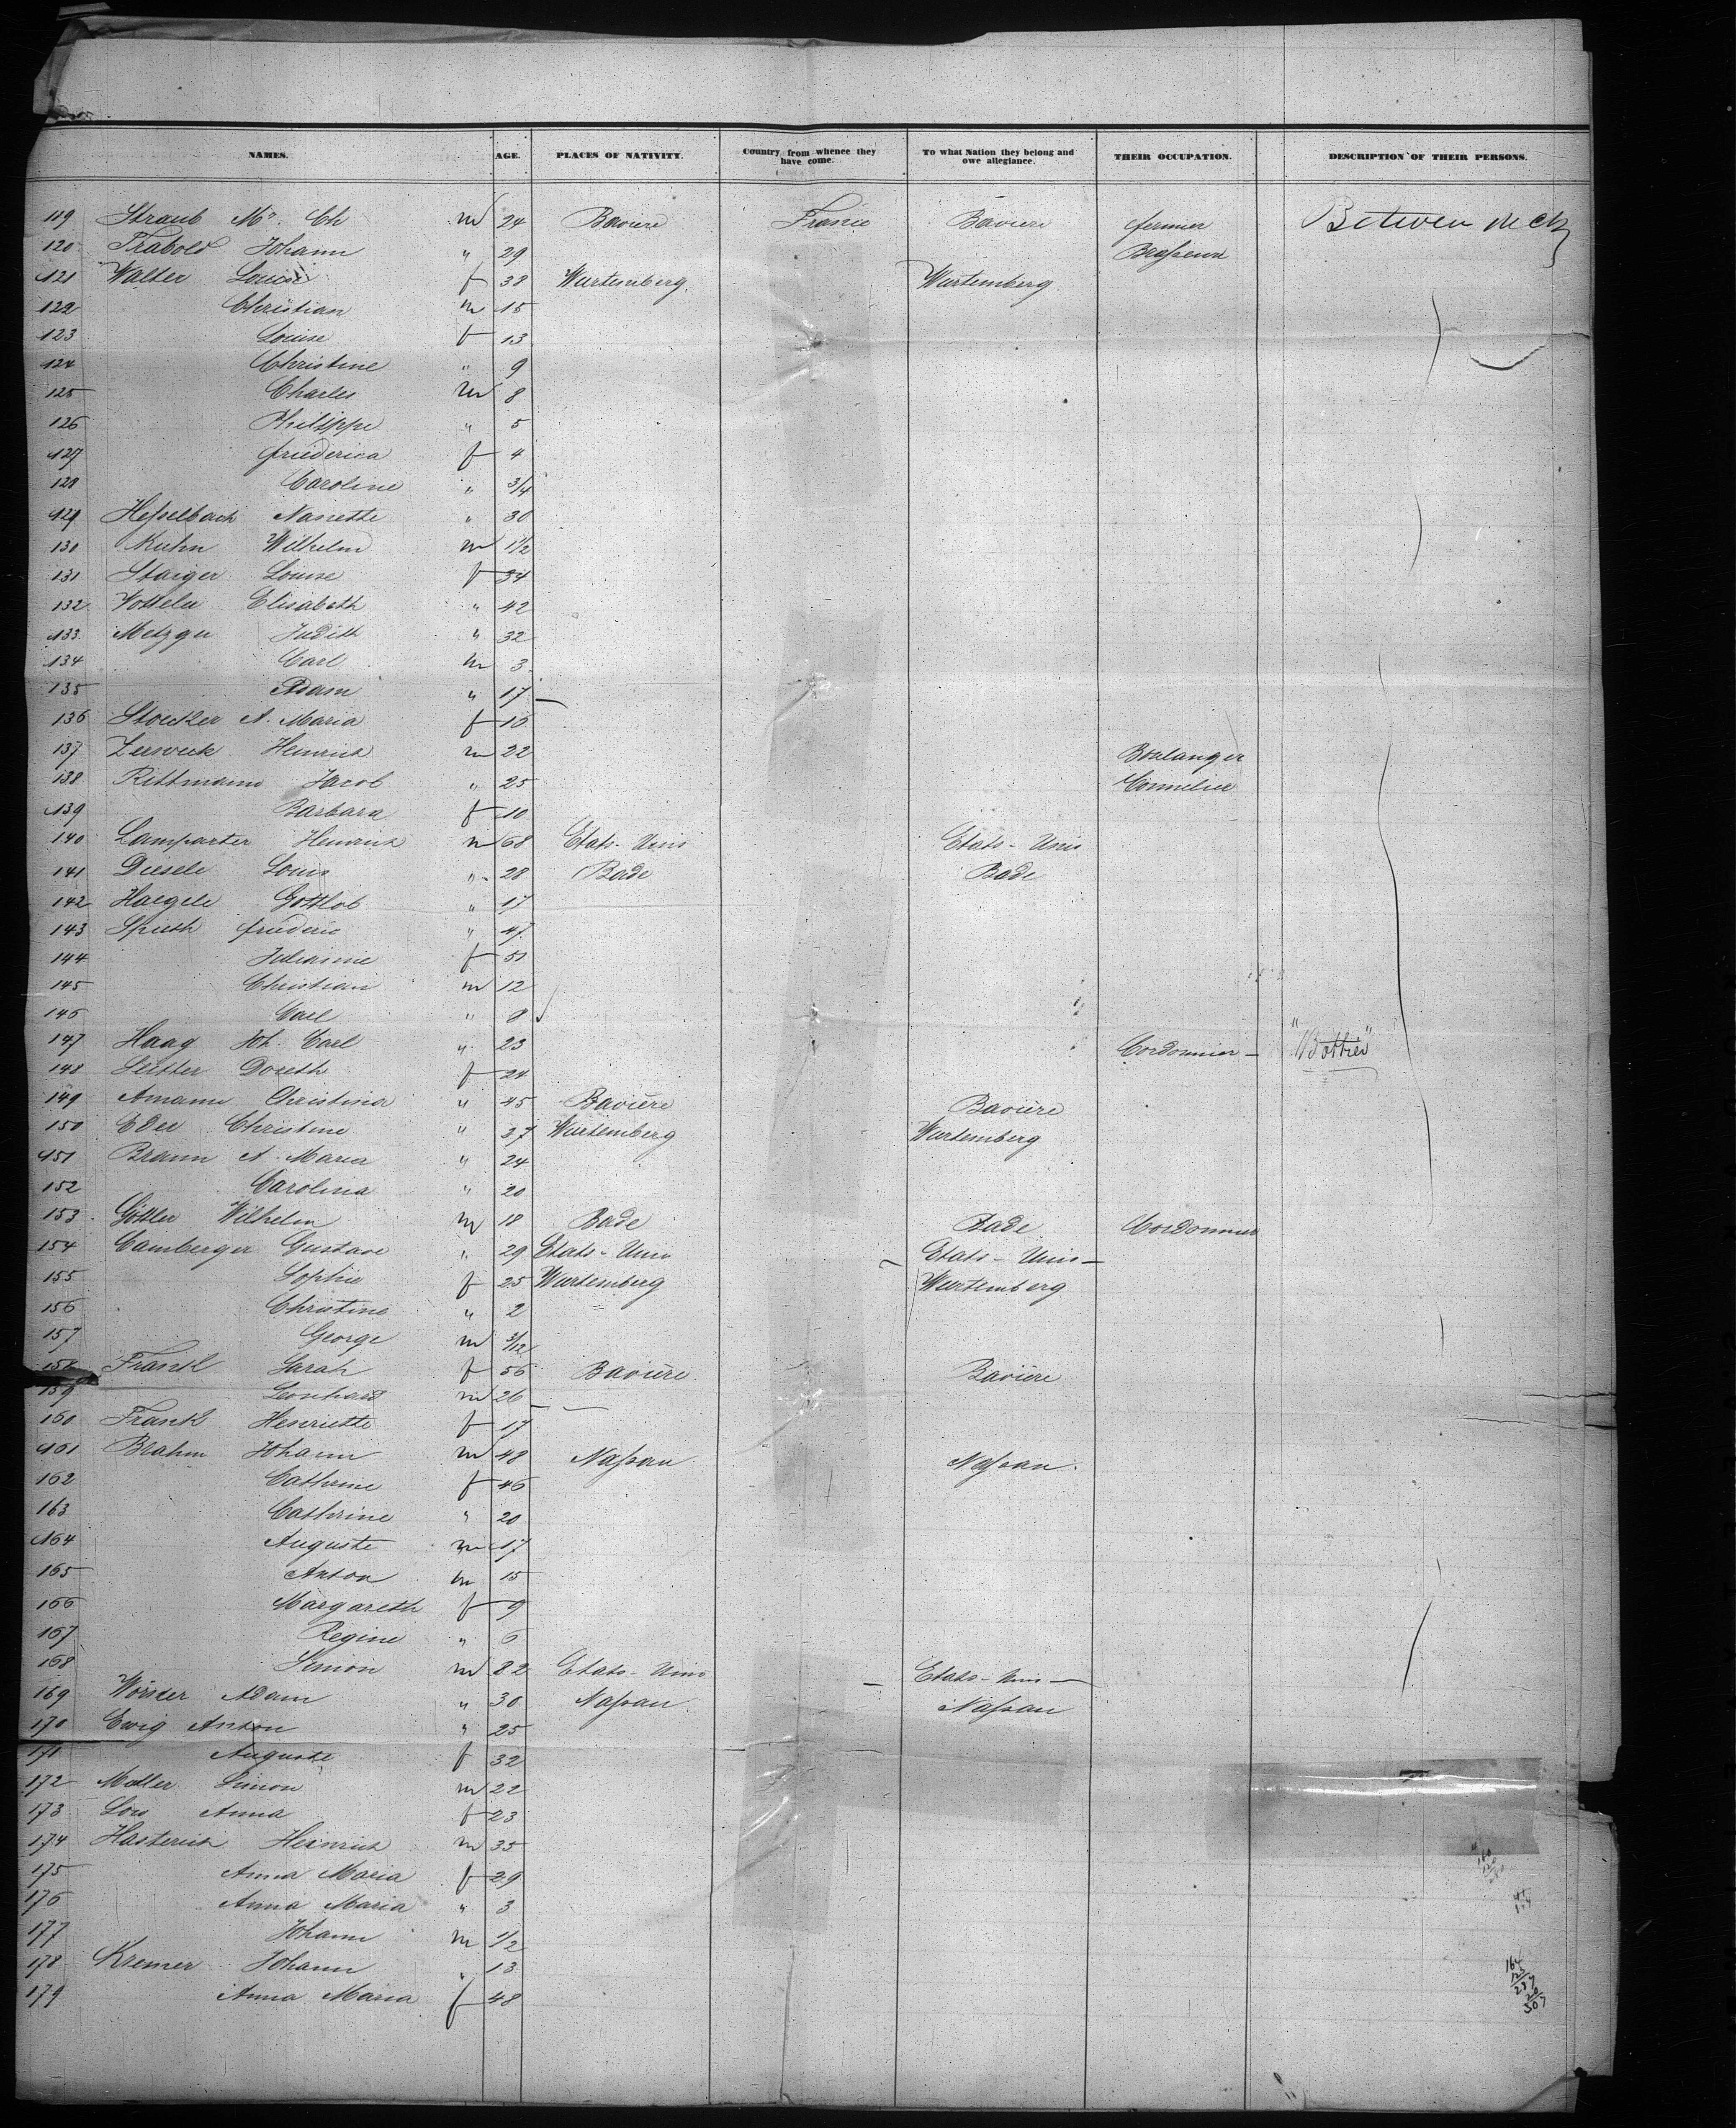 NAMES. AGE. PLACES OF NATIVITY. Country from whence they have come. To what Nation they belong and owe allegiance. THEIR OCCUPATION. DESCRIPTION OF THEIR PERSONS.
119 Straub Mr. Ch m 24 Baviere France Baviere fermier Between deck
120 Trabold Johann " 29 Brasseur
121 Walter Louise f 38 Wurtemberg. Wurtemberg
122 Christian m 15
123 Louise f 13
124 Christine " 9
125 Charles m 8
126 Philippe " 5
127 friederica f 4
128 Caroline " 3/4
129 Hesselbach Nanette " 30
130 Kuhn Wilhelm m 1 1/2
131 Staiger Louise f 34
132 Votteler Elisabeth " 42
133 Metzger Judith " 32
134 Carl m 3
135 Adam " 17
136 Stoecker A. Maria f 16
137 Zerweck Heinrich m 22 Boulanger
138 Rittmann Jacob " 25 Tonnelier
139 Barbara f 10
140 Lamparter Heinrich m 68 Etats-Unis Etats-Unis
141 Diesele Louis " 28 Bade Bade
142 Haegele Gottlob " 17
143 Spieth friederic " 47
144 Julianne f 51
145 Christian m 12
146 Carl " 8
147 Haag Joh. Carl " 23 Cordonnier - "Bottier"
148 Seitter Doreth f 24
149 Amann Christina " 45 Bavière Bavière
150 Eder Christine " 37 Wurtemberg Wurtemberg
151 Braun A. Maria " 24
152 Carolina " 20
153 Göttler Wilhelm m 18 Bade Bade Cordonnier
154 Camberger Gustave " 29 Etats-Unis Etats-Unis
155 Sophie f 25 Wurtemberg Wurtemberg
156 Christine " 2
157 George m 3/12
158 Frank Sarah f 56 Bavière Bavière
159 Leonhard m 26
160 Frank Henriette f 17
161 Brahm Johann m 48 Nassau Nassau
162 Catherine f 46
163 Cathrine " 20
164 Auguste m 17
165 Anton m 15
166 Margareth f 9
167 Regine " 6
168 Simon m 32 Etats-Unis Etats-Unis
169 Wörsder Adam " 30 Nassau Nassau
170 Ewig Anton " 25
171 Auguste f 32
172 Muller Simon m 22
173 Low Anna f 23
174 Hasterich Heinrich m 35
175 Anna Maria f 29
176 Anna Maria " 3
177 Johann m 1/2
178 Kremer Johann " 13
179 Anna Maria f 48